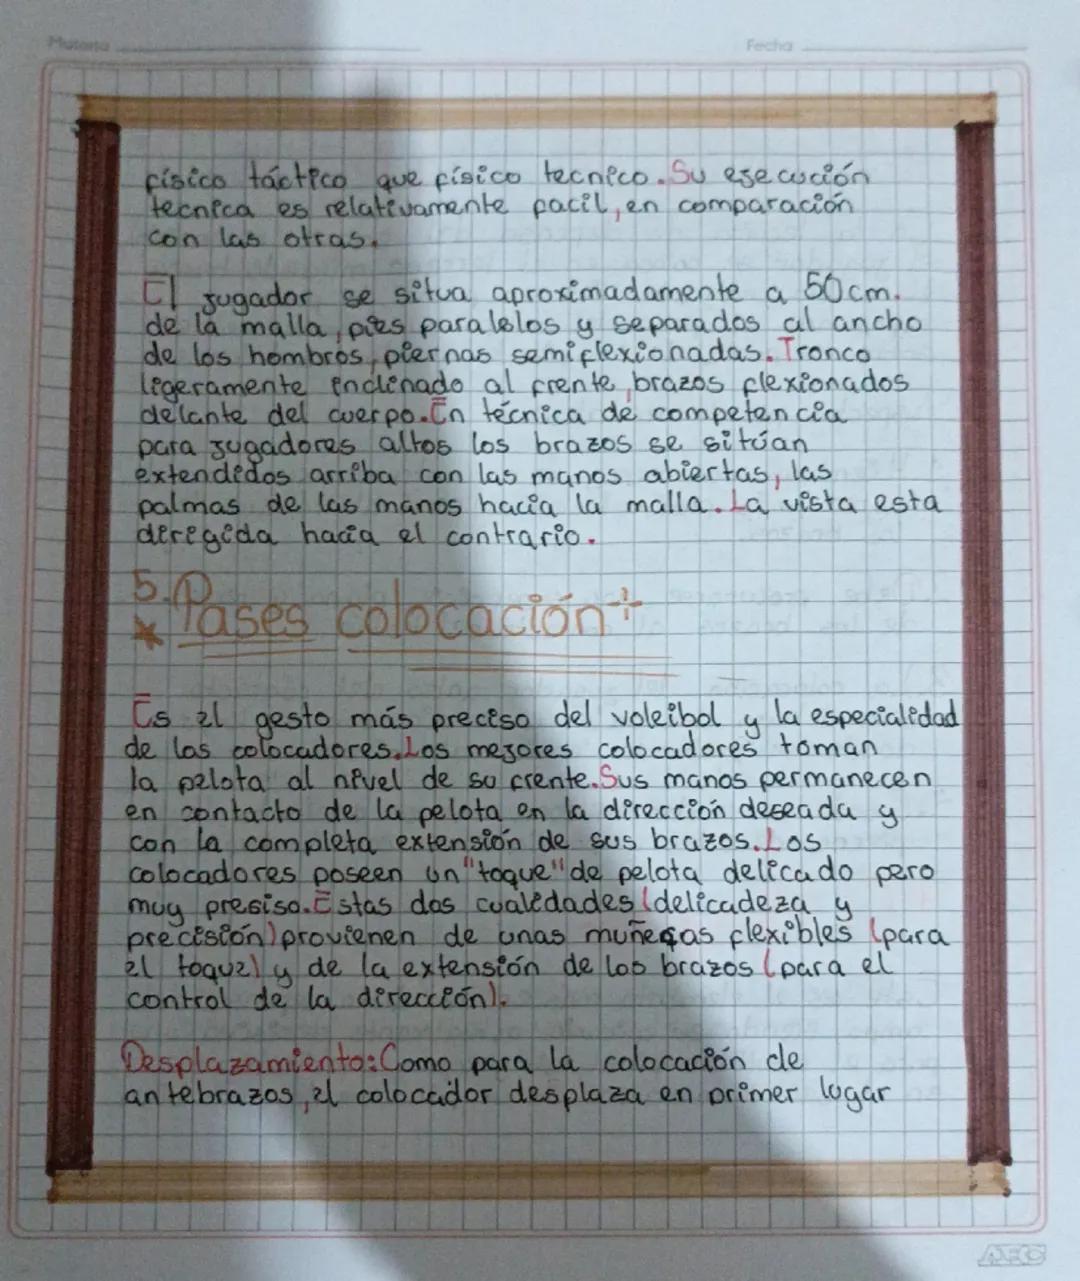 Materia
Fecha
físico táctico que físico tecnico. Su esecución
tecnica es relativamente facil, en comparación
con las otras.
El jugador se situa aproximadamente a 50cm.
de la malla, pies paralelos y separados al ancho
de los hombros, piernas semiflexionadas. Tronco
ligeramente inclinado al frente, brazos flexionados
delante del cuerpo. En técnica de competencia
para jugadores altos los brazos se sitúan
extendidos arriba con las manos abiertas, las
palmas de las manos hacia la malla. La vista esta
dirigida hacia el contrario.
5. Pases colocación÷
Es el gesto más preciso del voleibol y la especialidad
de los colocadores. Los mejores colocadores toman
la pelota al nivel de su frente. Sus manos permanecen
en contacto de la pelota en la dirección deseada y
con la completa extensión de sus brazos. Los
colocadores poseen un "toque" de pelota delicado pero
muy presiso. Estas dos cualidades (delicadeza y
precisión) provienen de unas muñecas flexibles (para
el toque) y de la extensión de los brazos (para el
control de la dirección).
Desplazamiento: Como para la colocación de
antebrazos, el colocador desplaza en primer lugar
AEC